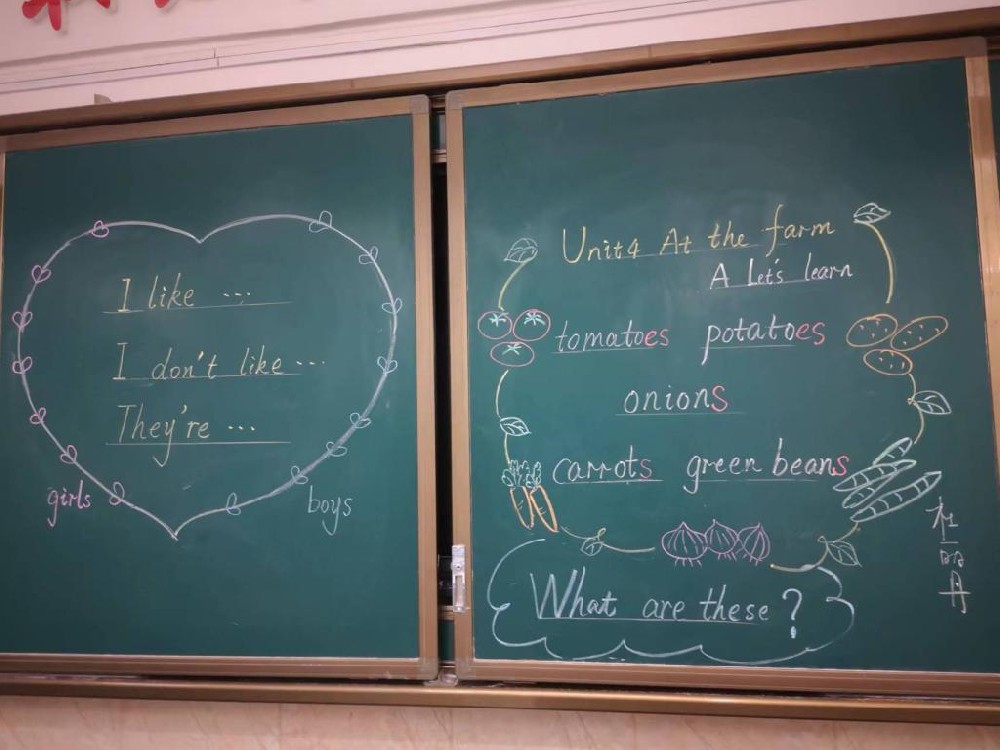 I like ...
I don't like ...
They're ...
girls
boys
Unit4 At the farm
A Let's learn
tomatoes potatoes
onions
carrots green beans
What are these?